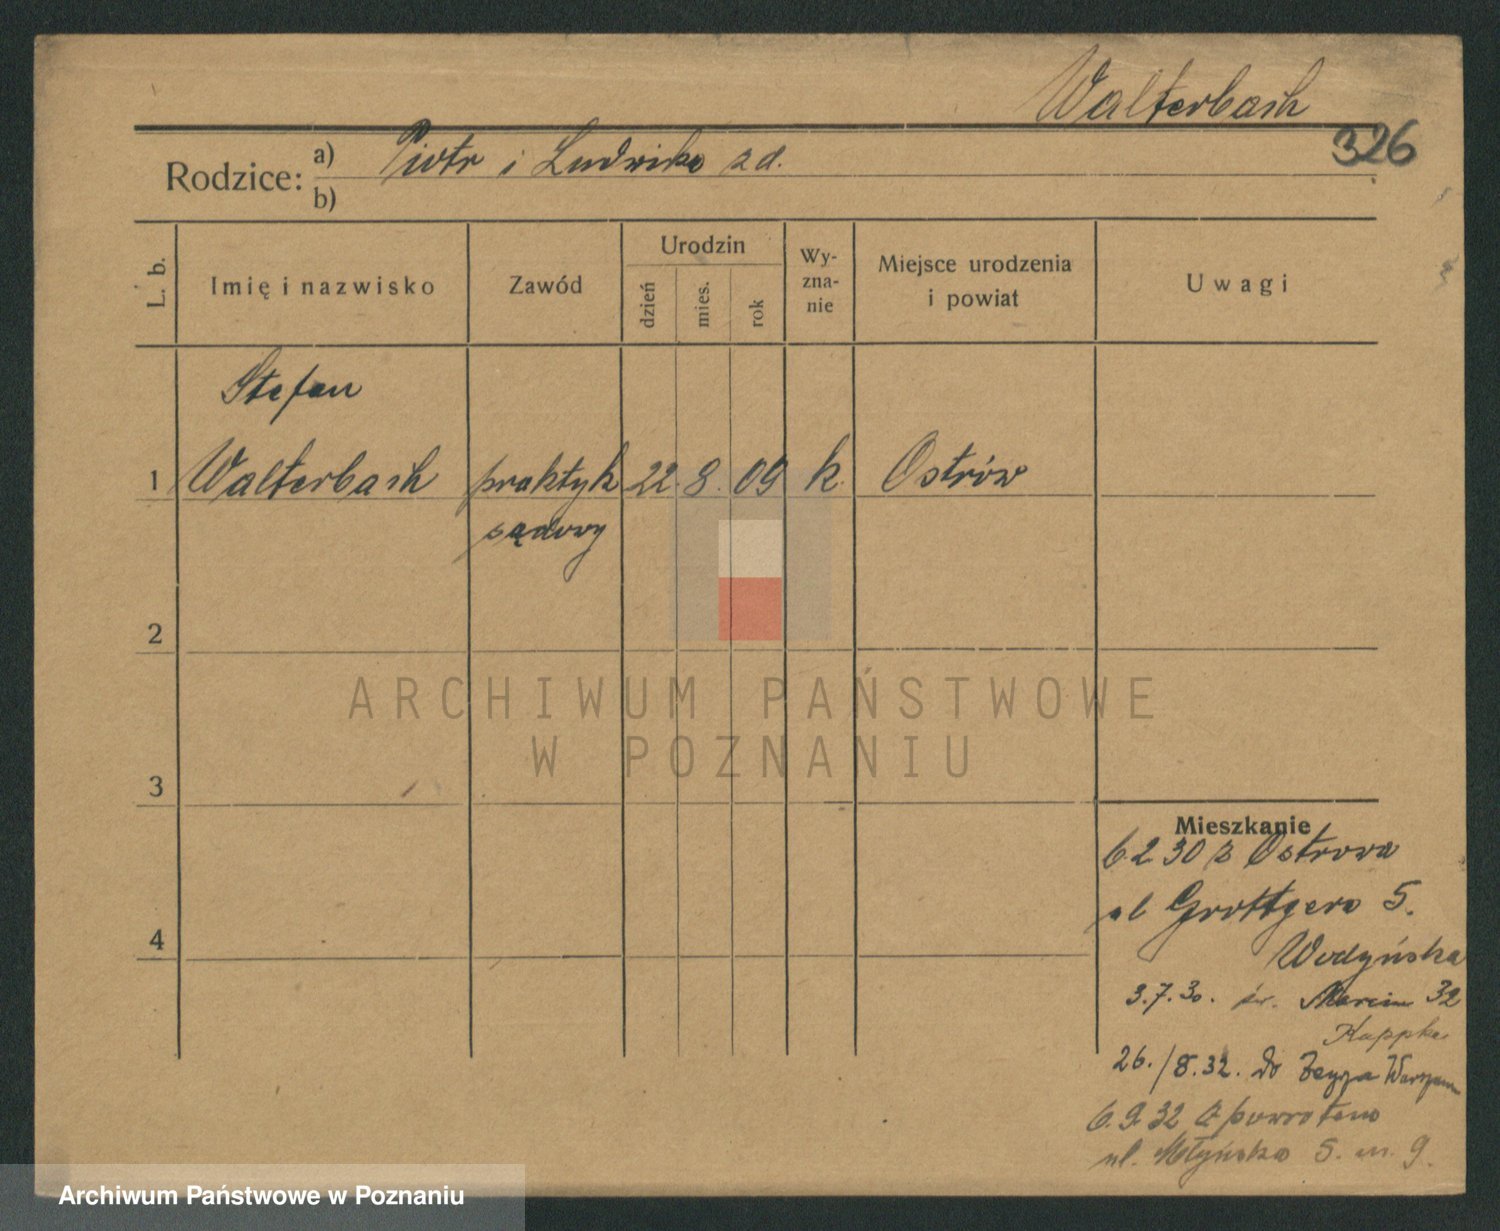 Walterbach
326
Rodzice: a) Piotr i Ludwika zd.
b)
L. b.
Imię i nazwisko
Zawód
Urodzin
dzień
mies.
rok
Wy-
zna-
nie
Miejsce urodzenia
i powiat
Uwagi
Stefan
1 Walterbach praktyk 22. 8. 09 k. Ostrów
sądowy
2
3
4
ARCHIWUM PAŃSTWOWE
W POZNANIU
Mieszkanie
6 2 30 z Ostrowa
ul Grottgera 5.
Wodyńska
3.7.30. św. Marcin 32
Kappka
26./8.32. do
6.9.32 powrotem
ul. Młyńska 5. m. 9.
Archiwum Państwowe w Poznaniu